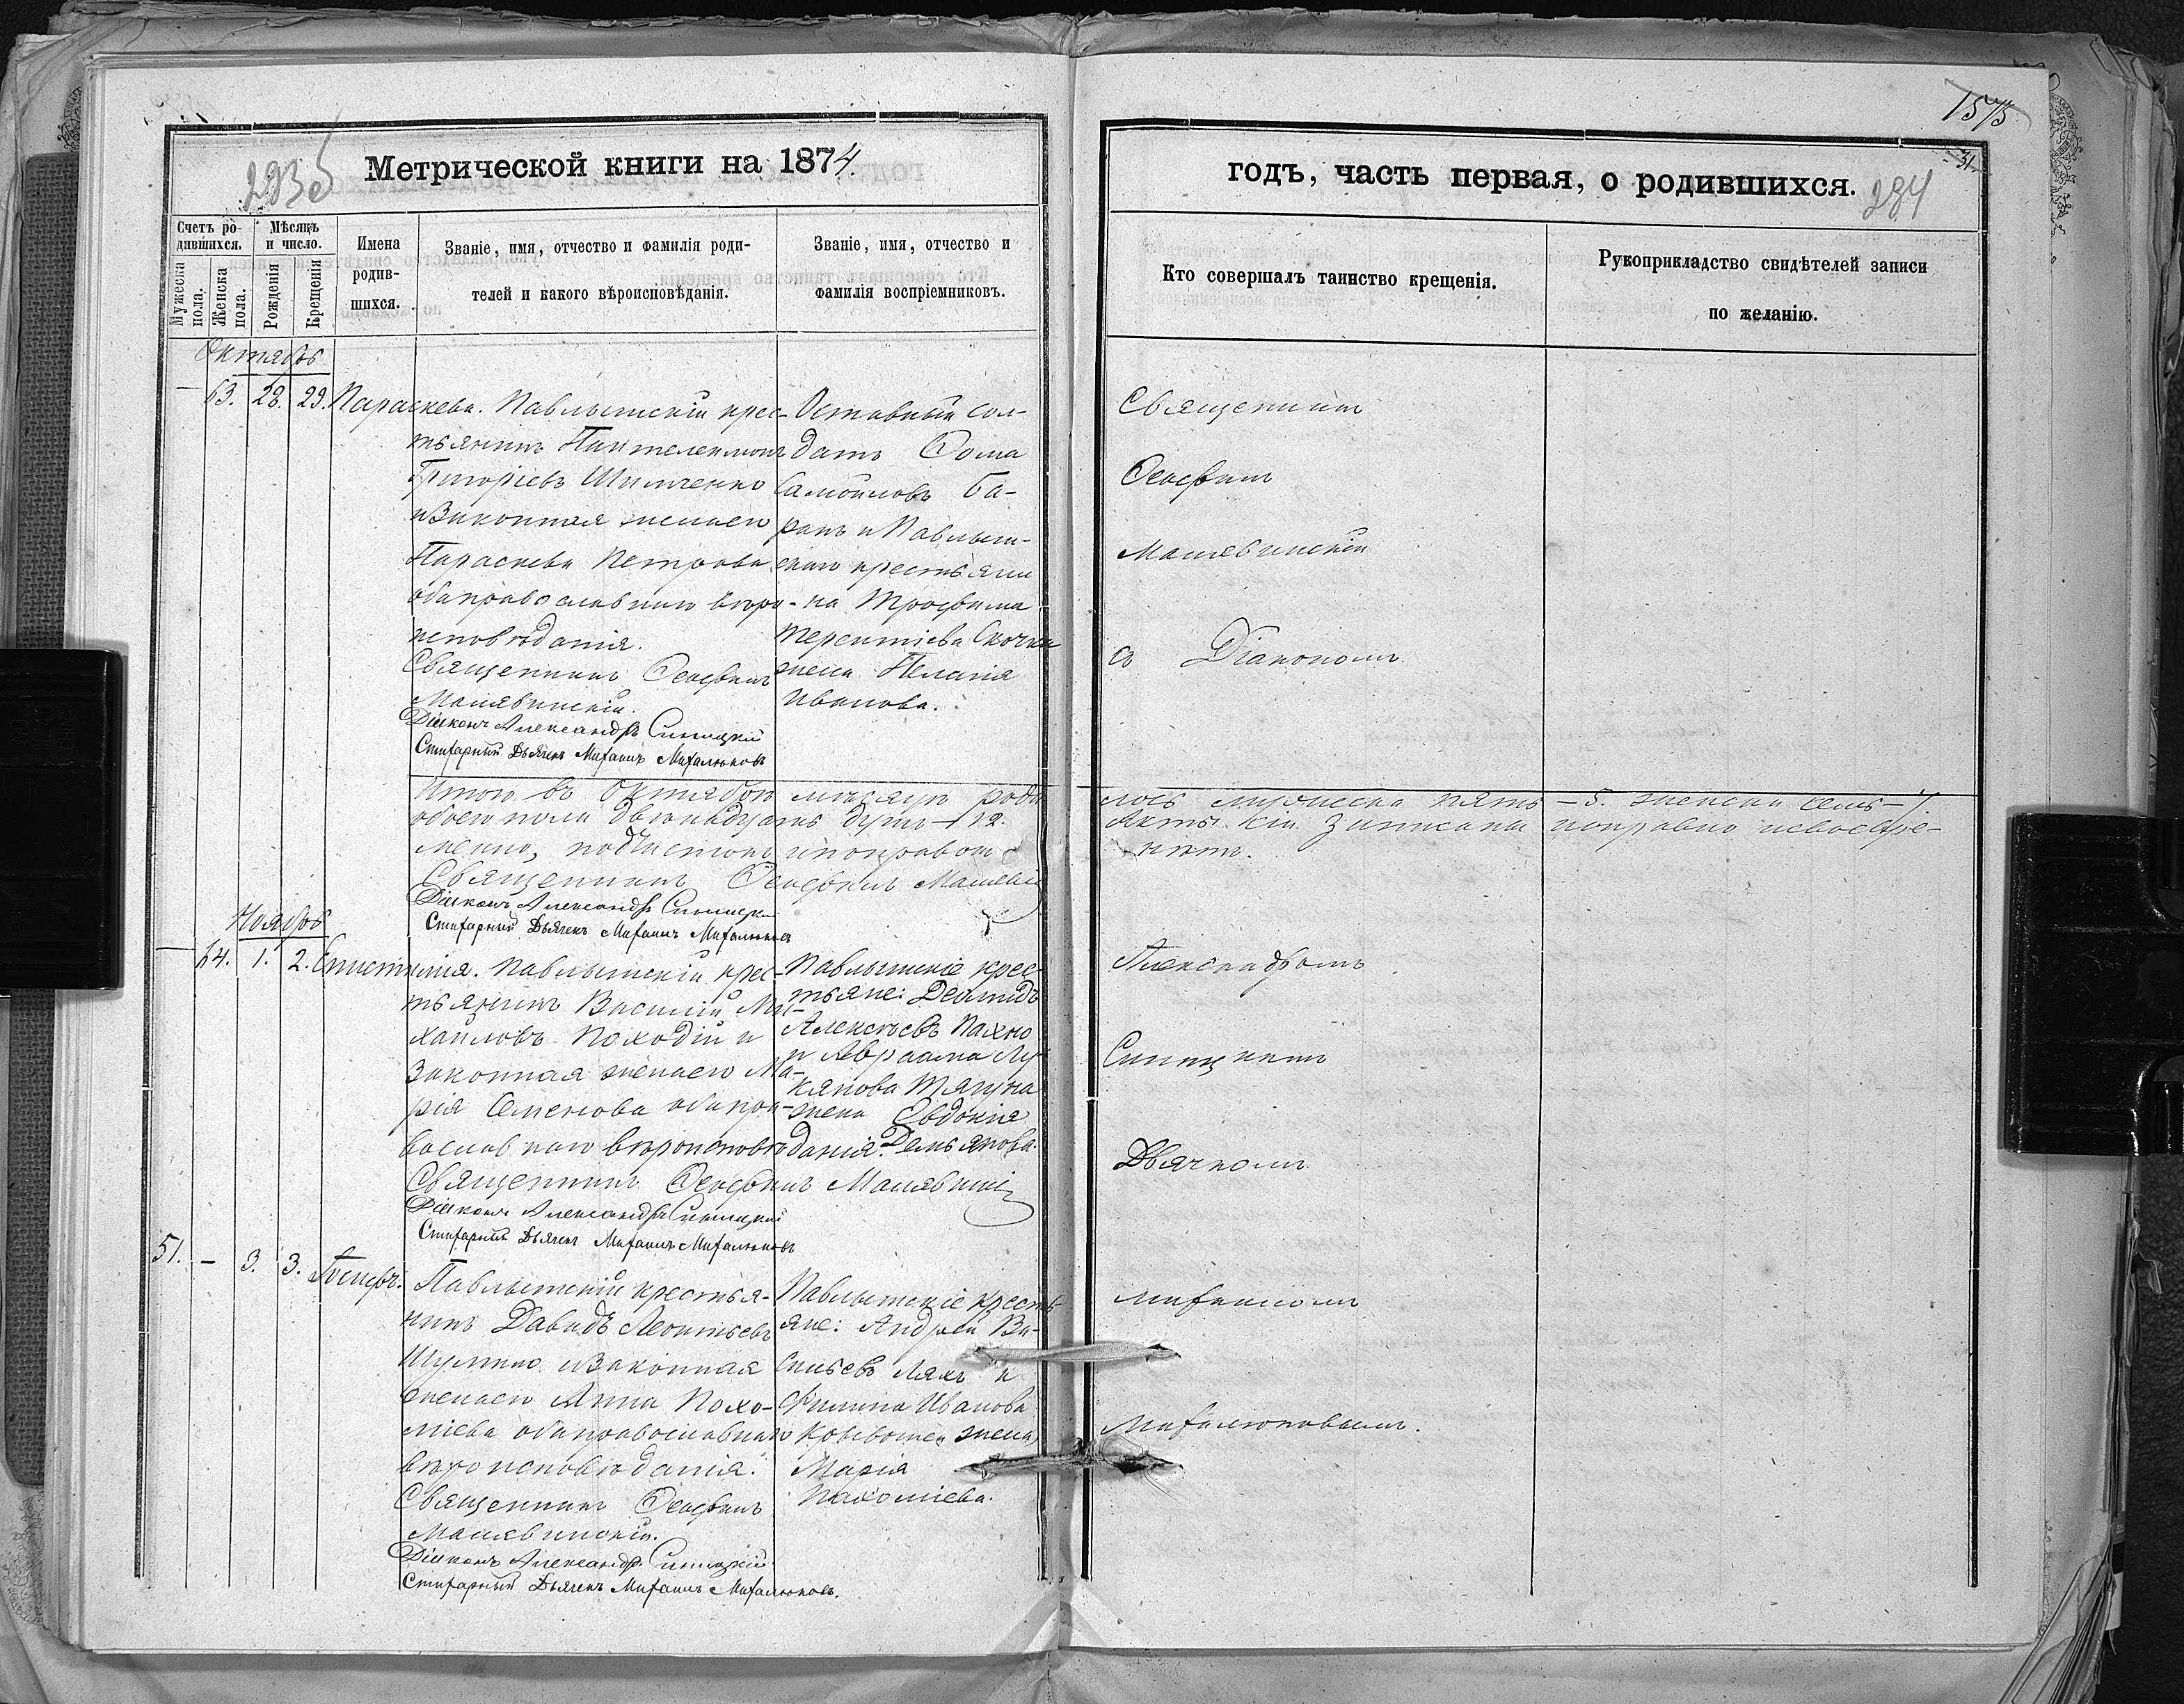 1575
31.
283 б
284
Метрической книги на 1874.
годъ, часть первая, о родившихся.
Счетъ родившихся.
Мѣсяцъ и число.
Мужеска пола.
Женска пола.
Рожденія
Крещенія
Имена родившихся.
Званіе, имя, отчество и фамилія родителей и какого вѣроисповѣданія.
Званіе, имя, отчество и фамилія воспріемниковъ.
Кто совершалъ таинство крещенія.
Рукоприкладство свидѣтелей записи
по желанію.
Октябрь
— 63. 28. 29. Параскева. Павлышскій крес-
тьянинъ Пантелеимонъ
Григоріевъ Шимченко
и законная жена его
Параскева Петрова
оба православнаго вѣро-
исповѣданія.
Священникъ Ѳеофилъ
Малявинскій.
Діаконъ Александръ Синицкій
Стихарный Дьячекъ Михаилъ Михалюковъ
Отставный сол-
датъ Ѳома
Самойловъ Ба-
ранъ и Павлыш-
скаго крестьяни-
на Трофима
Терентіева Скочка
жена Пелагія
Иванова.
Священникъ
Ѳеофилъ
Малявинскій
съ Діакономъ
Итого въ Октябрѣ мѣсяцѣ роди
лось мужеска пять — 5. женска семь — 7.
обоего пола двенадцать душъ — 12.
Акты сіи записаны исправно и своевре-
менно, подчистокъ и поправокъ
нѣтъ.
Священникъ Ѳеофилъ Маляві
Діаконъ Александръ Синицкій
Стихарный Дьячекъ Михаилъ Михалюковъ
Ноябрь
— 64. 1. 2. Епистимія. Павлышскій крес-
тьянинъ Василій Ми-
хайловъ Походій и
законная жена его Ма-
рія Семенова оба пра-
вославнаго вѣроисповѣданія.
Священникъ Ѳеофилъ Малявинскі
Діаконъ Александръ Синицкій
Стихарный Дьячекъ Михаилъ Михалюковъ
Павлышскіе крес-
тьяне: Деомидъ
Алексѣевъ Пахно
и Авраама Лу-
кянова Тягуна
жена Евдокія
Демьянова.
Александромъ
Синицкимъ
Дьячкомъ
51. — 3. 3. Іосифъ. Павлышскій крестья-
нинъ Давидъ Леонтьевъ
Шумило и законная
жена его Анна Пахо-
міева оба православнаго
вѣроисповѣданія.
Священникъ Ѳеофилъ
Малявинскій.
Діаконъ Александръ Синицкій
Стихарный Дьячекъ Михаилъ Михалюковъ.
Павлышскіе кресть-
яне: Андрей Ва-
сильевъ Ляхъ и
Филипа Иванова
жена
Марія
Пахоміева.
Михаиломъ
Михалюковымъ.